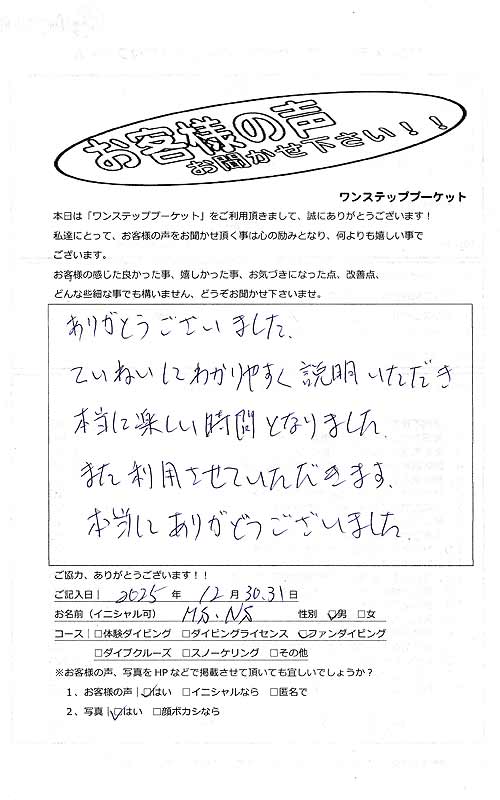 お客様の声
お聞かせ下さい！！
ワンステッププーケット
本日は「ワンステッププーケット」をご利用頂きまして、誠にありがとうございます！
私達にとって、お客様の声をお聞かせ頂く事は心の励みとなり、何よりも嬉しい事で
ございます。
お客様の感じた良かった事、嬉しかった事、お気づきになった点、改善点、
どんな些細な事でも構いません、どうぞお聞かせ下さいませ。
ありがとうございました。
ていねいにわかりやすく説明いただき
本当に楽しい時間となりました。
また利用させていただきます。
本当にありがとうございました。
ご協力、ありがとうございます！！
ご記入日｜ 2025 年 12 月 30.31 日
お名前（イニシャル可） M.S・N.S 性別 ☑男 □女
コース｜□体験ダイビング □ダイビングライセンス ☑ファンダイビング
□ダイブクルーズ □スノーケリング □その他
※お客様の声、写真をHPなどで掲載させて頂いても宜しいでしょうか？
1、お客様の声｜☑はい □イニシャルなら □匿名で
2、写真｜☑はい □顔ボカシなら